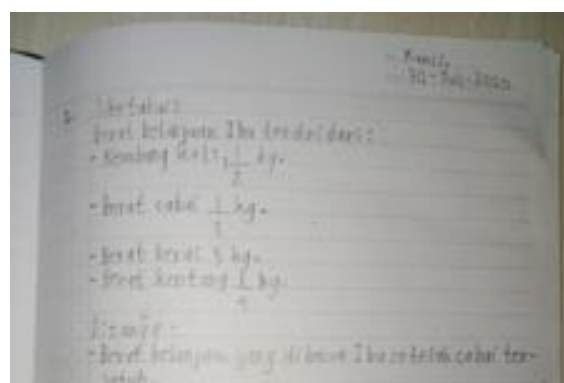 Kamis,
30 - Juli - 2020
Diketahui:
Berat belanjaan Ibu terdiri dari:
- kembang kol = 1 1/2 kg.
- Berat cabai 1/ kg.
- Berat beras 5 kg.
- Berat kentang 1/4 kg.
Ditanya:
- Berat belanjaan yang dibawa Ibu setelah cabai ter-
jatuh.